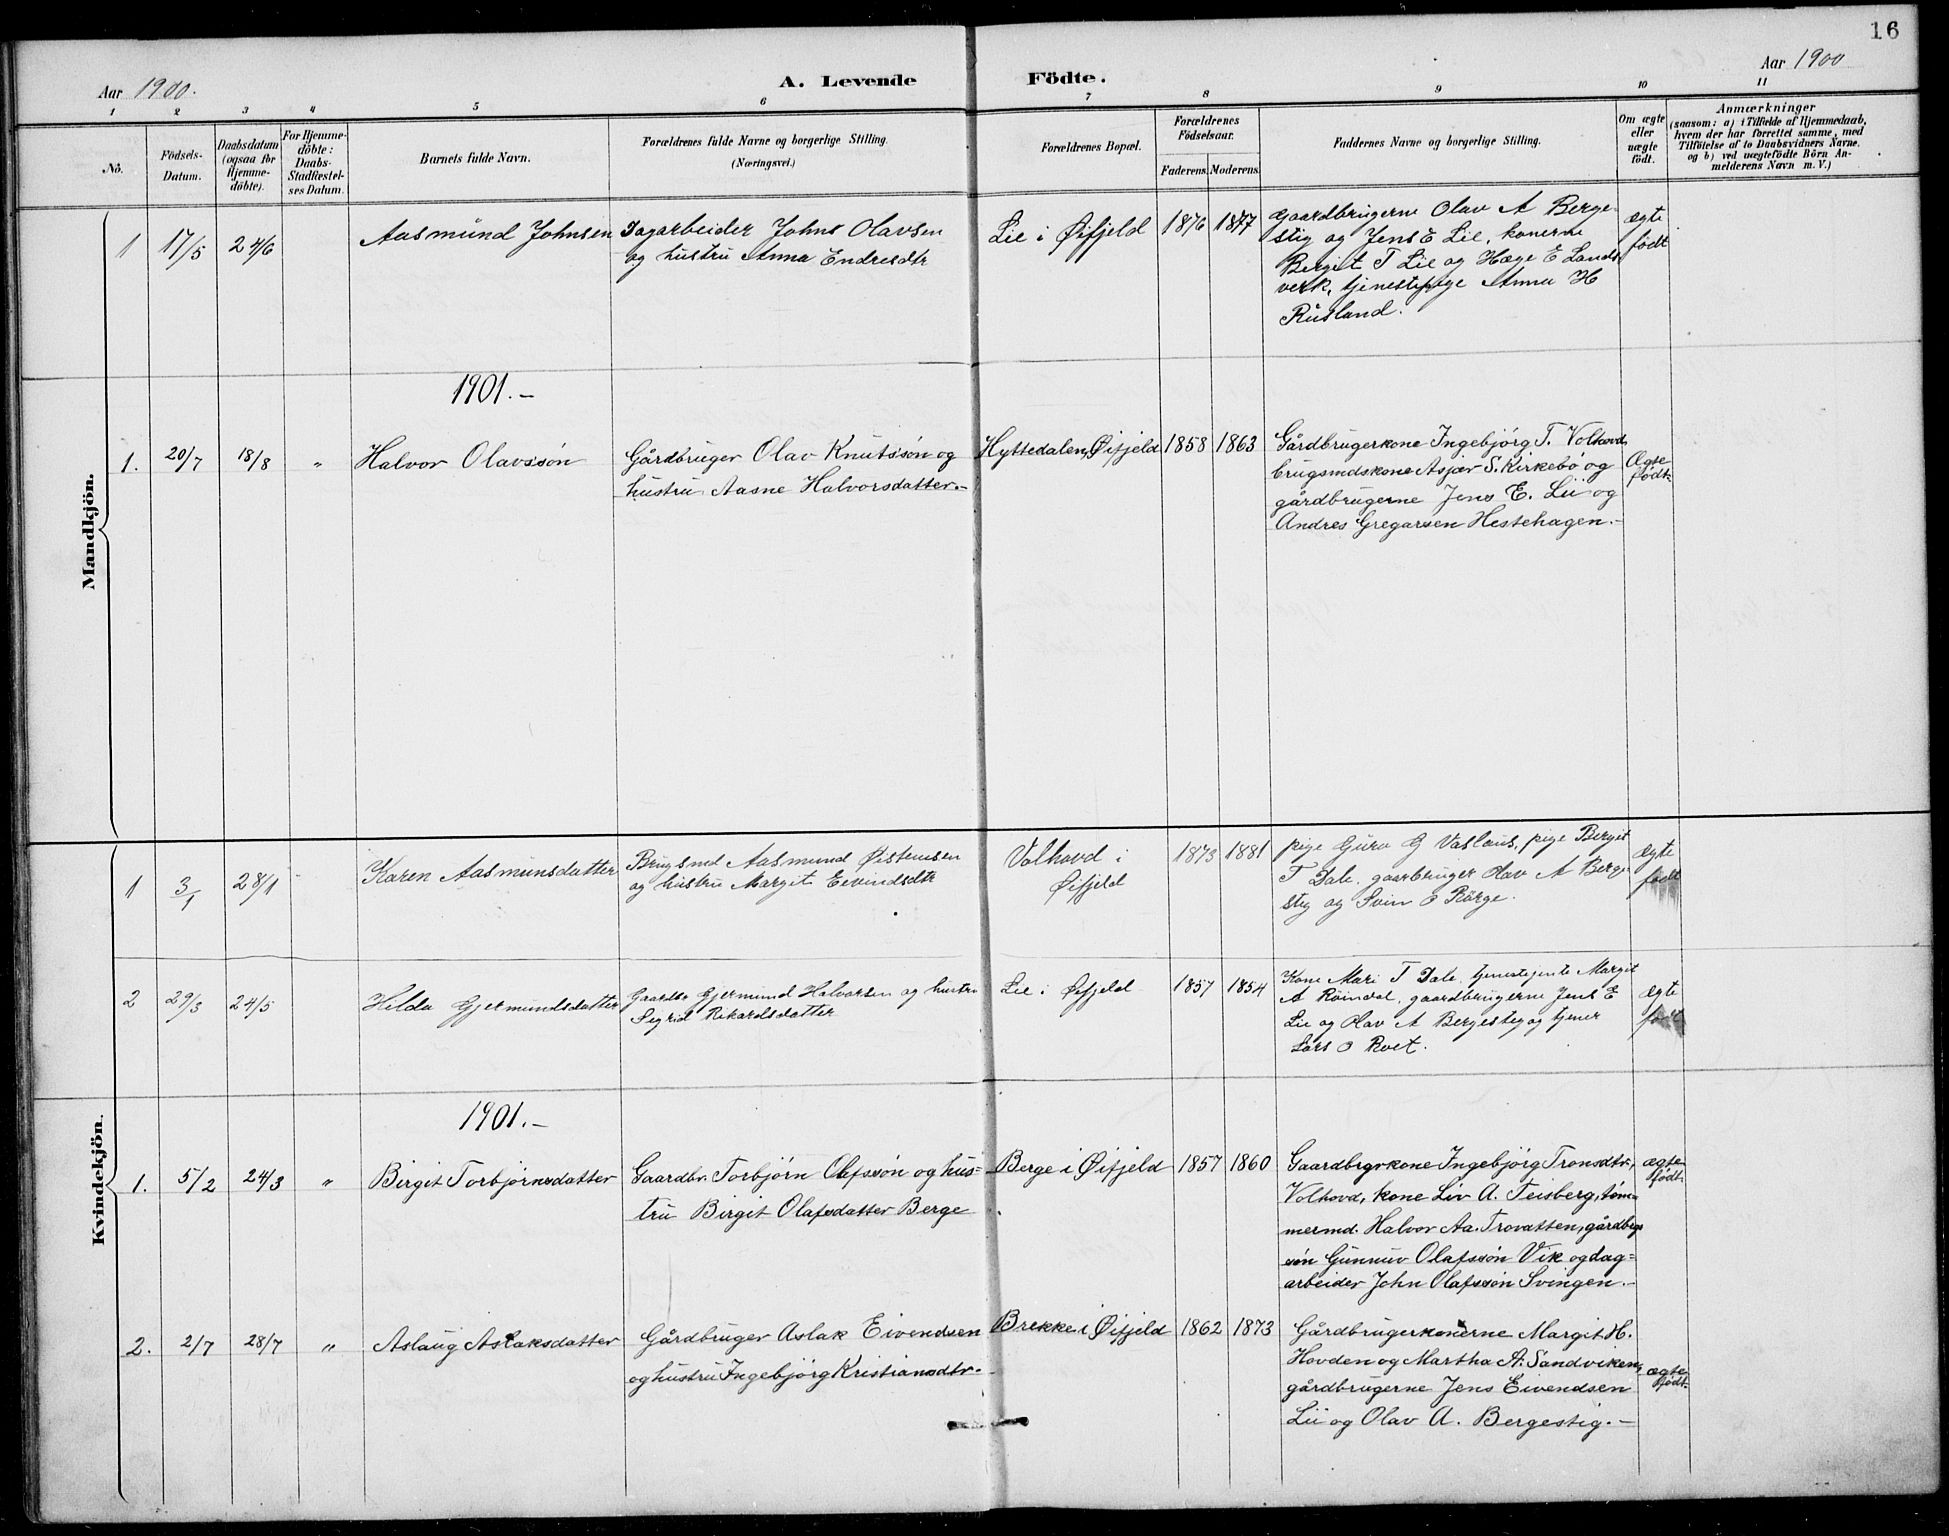 16
Aar 1900.
A. Levende Födte.
Aar 1900
1 2 3 4 5 6 7 8 9 10 11
No.
Födsels-
Datum.
Daabsdatum
(ogsaa for
Hjemme-
döbte).
For Hjemme-
döbte:
Daabs-
Stadfæstel-
ses Datum.
Barnets fulde Navn.
Forældrenes fulde Navne og borgerlige Stilling.
(Næringsvei.)
Forældrenes Bopæl.
Forældrenes
Födselsaar.
Faderens. Moderens.
Faddernes Navne og borgerlige Stilling.
Om ægte
eller
uægte
födt.
Anmærkninger
(saasom: a) i Tilfælde af Hjemmedaab,
hvem der har forrettet samme, med
Tilföielse af to Daabsvidners Navne,
og b) ved uægtefödte Börn An-
melderens Navn m. V.)
Mandkjön.
1 17/5 24/6 Aasmund Johnsen
Dagarbeider Johns Olavsen
og hustru Anna Endresdtr
Lie i Øifjeld 1876 1877
Gaardbrugerne Olav A Berge-
stig og Jens E Lie, konerne
Bergit T Lie og Hæge E Lands-
verk, tjenestepige Anna H
Rusland.
ægte
født
1901.-
1. 20/7 18/8 " Halvor Olavssön
Gårdbruger Olav Knutssön og
hustru Aasne Halvorsdatter.-
Hyttedalen, Øifjeld 1858 1863
Gårdbrugerkone Ingebjörg T. Volhovd,
brugsmdskone Asjær S. Kirkebö og
gårdbrugerne Jens E. Lii og
Andres Gregarsen Hestehagen.-
Ægte
født.
Kvindekjön.
1 3/1 28/1 Karen Aasmunsdatter
Brugsmd Aasmund Østensen
og hustru Margit Eivindsdtr
Volhovd i
Øifjeld
1873 1881
pige Guro G Vaslaus, pige Bergit
T Dale, gaarbruger Olav A Berge-
stig og Svin O Rörge.
ægte
født
2 29/3 24/5 Hilda Gjermundsdatter
Gaardbr Gjermund Halvorsen og hustru
Sigrid Rikardsdatter
Lie i Øifjeld 1857 1854
Kone Mari T Dale, tjenestejente Margit
A Röindal, gaardbrugerne Jens E
Lie og Olav A Bergestig og tjener
Lars O Roet.
ægte
født
1901.-
1. 5/2 24/3 " Birgit Torbjörnsdatter
Gaardbr. Torbjörn Olafssön og hus=
tru Birgit Olafsdatter Berge
Berge i Øifjeld 1857 1860
Gaardbrgrkone Ingebjörg Tronsdtr,
Volhovd, kone Liv A. Teisberg, töm-
mermd. Halvor Aa. Trovatten, gårdbrgs
sön Gunnuv Olafssön Vik og dag=
arbeider John Olafssön Svingen.-
ægte
født.
2. 2/7 28/7 " Aslaug Aslaksdatter
Gårdbruger Aslak Eivendsen
og hustru Ingebjörg Kristiansdtr.
Brekke i Øifjeld 1862 1873
Gårdbrugerkonerne Margit H.
Hovden og Martha A. Sandviken,
gårdbrugerne Jens Eivendsen
Lii og Olav A. Bergestig.-
ægte
født.